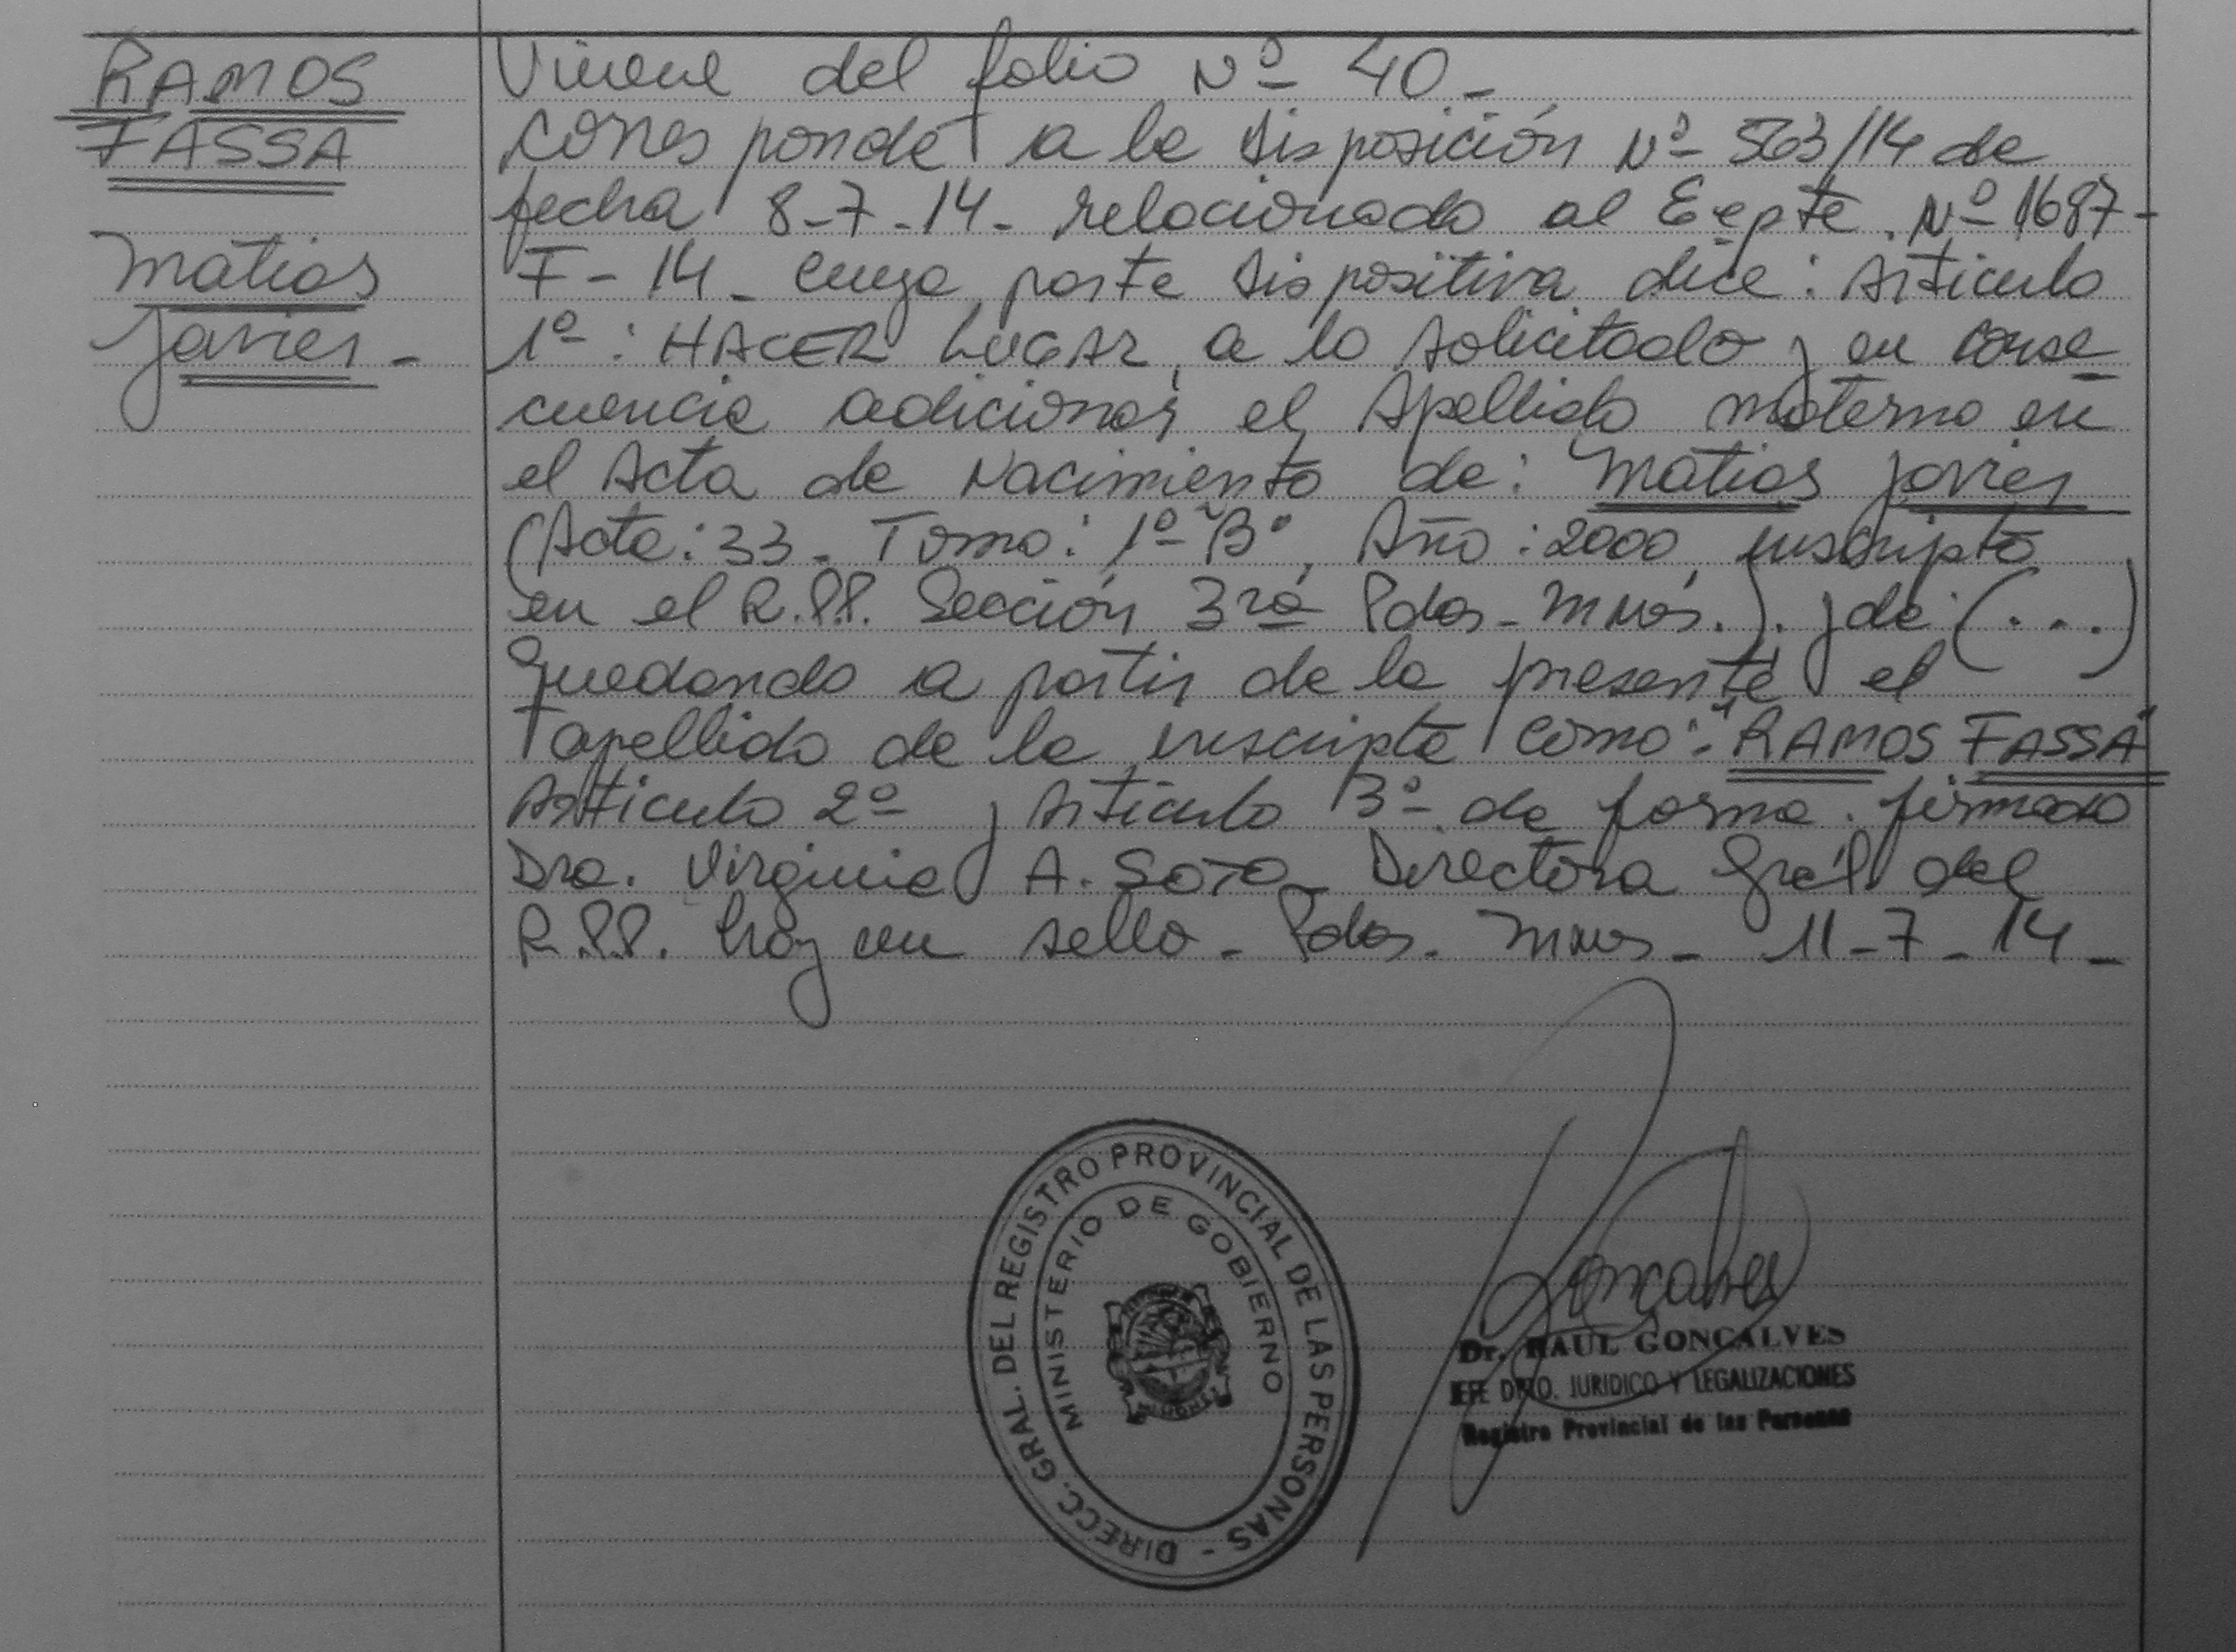 RAMOS
FASSA
Matias
Javier -
Viene del folio Nº 40 -
Corresponde a la disposición Nº 563/14 de
fecha 8-7-14- relacionado al Expte. Nº 1687-
F-14- cuya parte dispositiva dice: Articulo
1º: HACER LUGAR a lo solicitado y en conse
cuencia adicionar el Apellido materno en
el Acta de Nacimiento de: Matias Javier
(Acta: 33. Tomo: 1º "B" Año: 2000, inscripto
en el R.P.P. Sección 3ra Pdas - Mnes.). y de: (...)
Quedando a partir de la presente el
apellido de la inscripta como: "RAMOS FASSA"
Articulo 2º y Articulo 3º de forma. firmado
Dra. Virginia A. SOTO - Directora Gral del
R.P.P. hay un sello - Pdas. Mnes - 11-7-14-
DIRECC. GRAL. DEL REGISTRO PROVINCIAL DE LAS PERSONAS -
MINISTERIO DE GOBIERNO
MISIONES
Goncalves
Dr. RAUL GONCALVES
JEFE DPTO. JURIDICO Y LEGALIZACIONES
Registro Provincial de las Personas